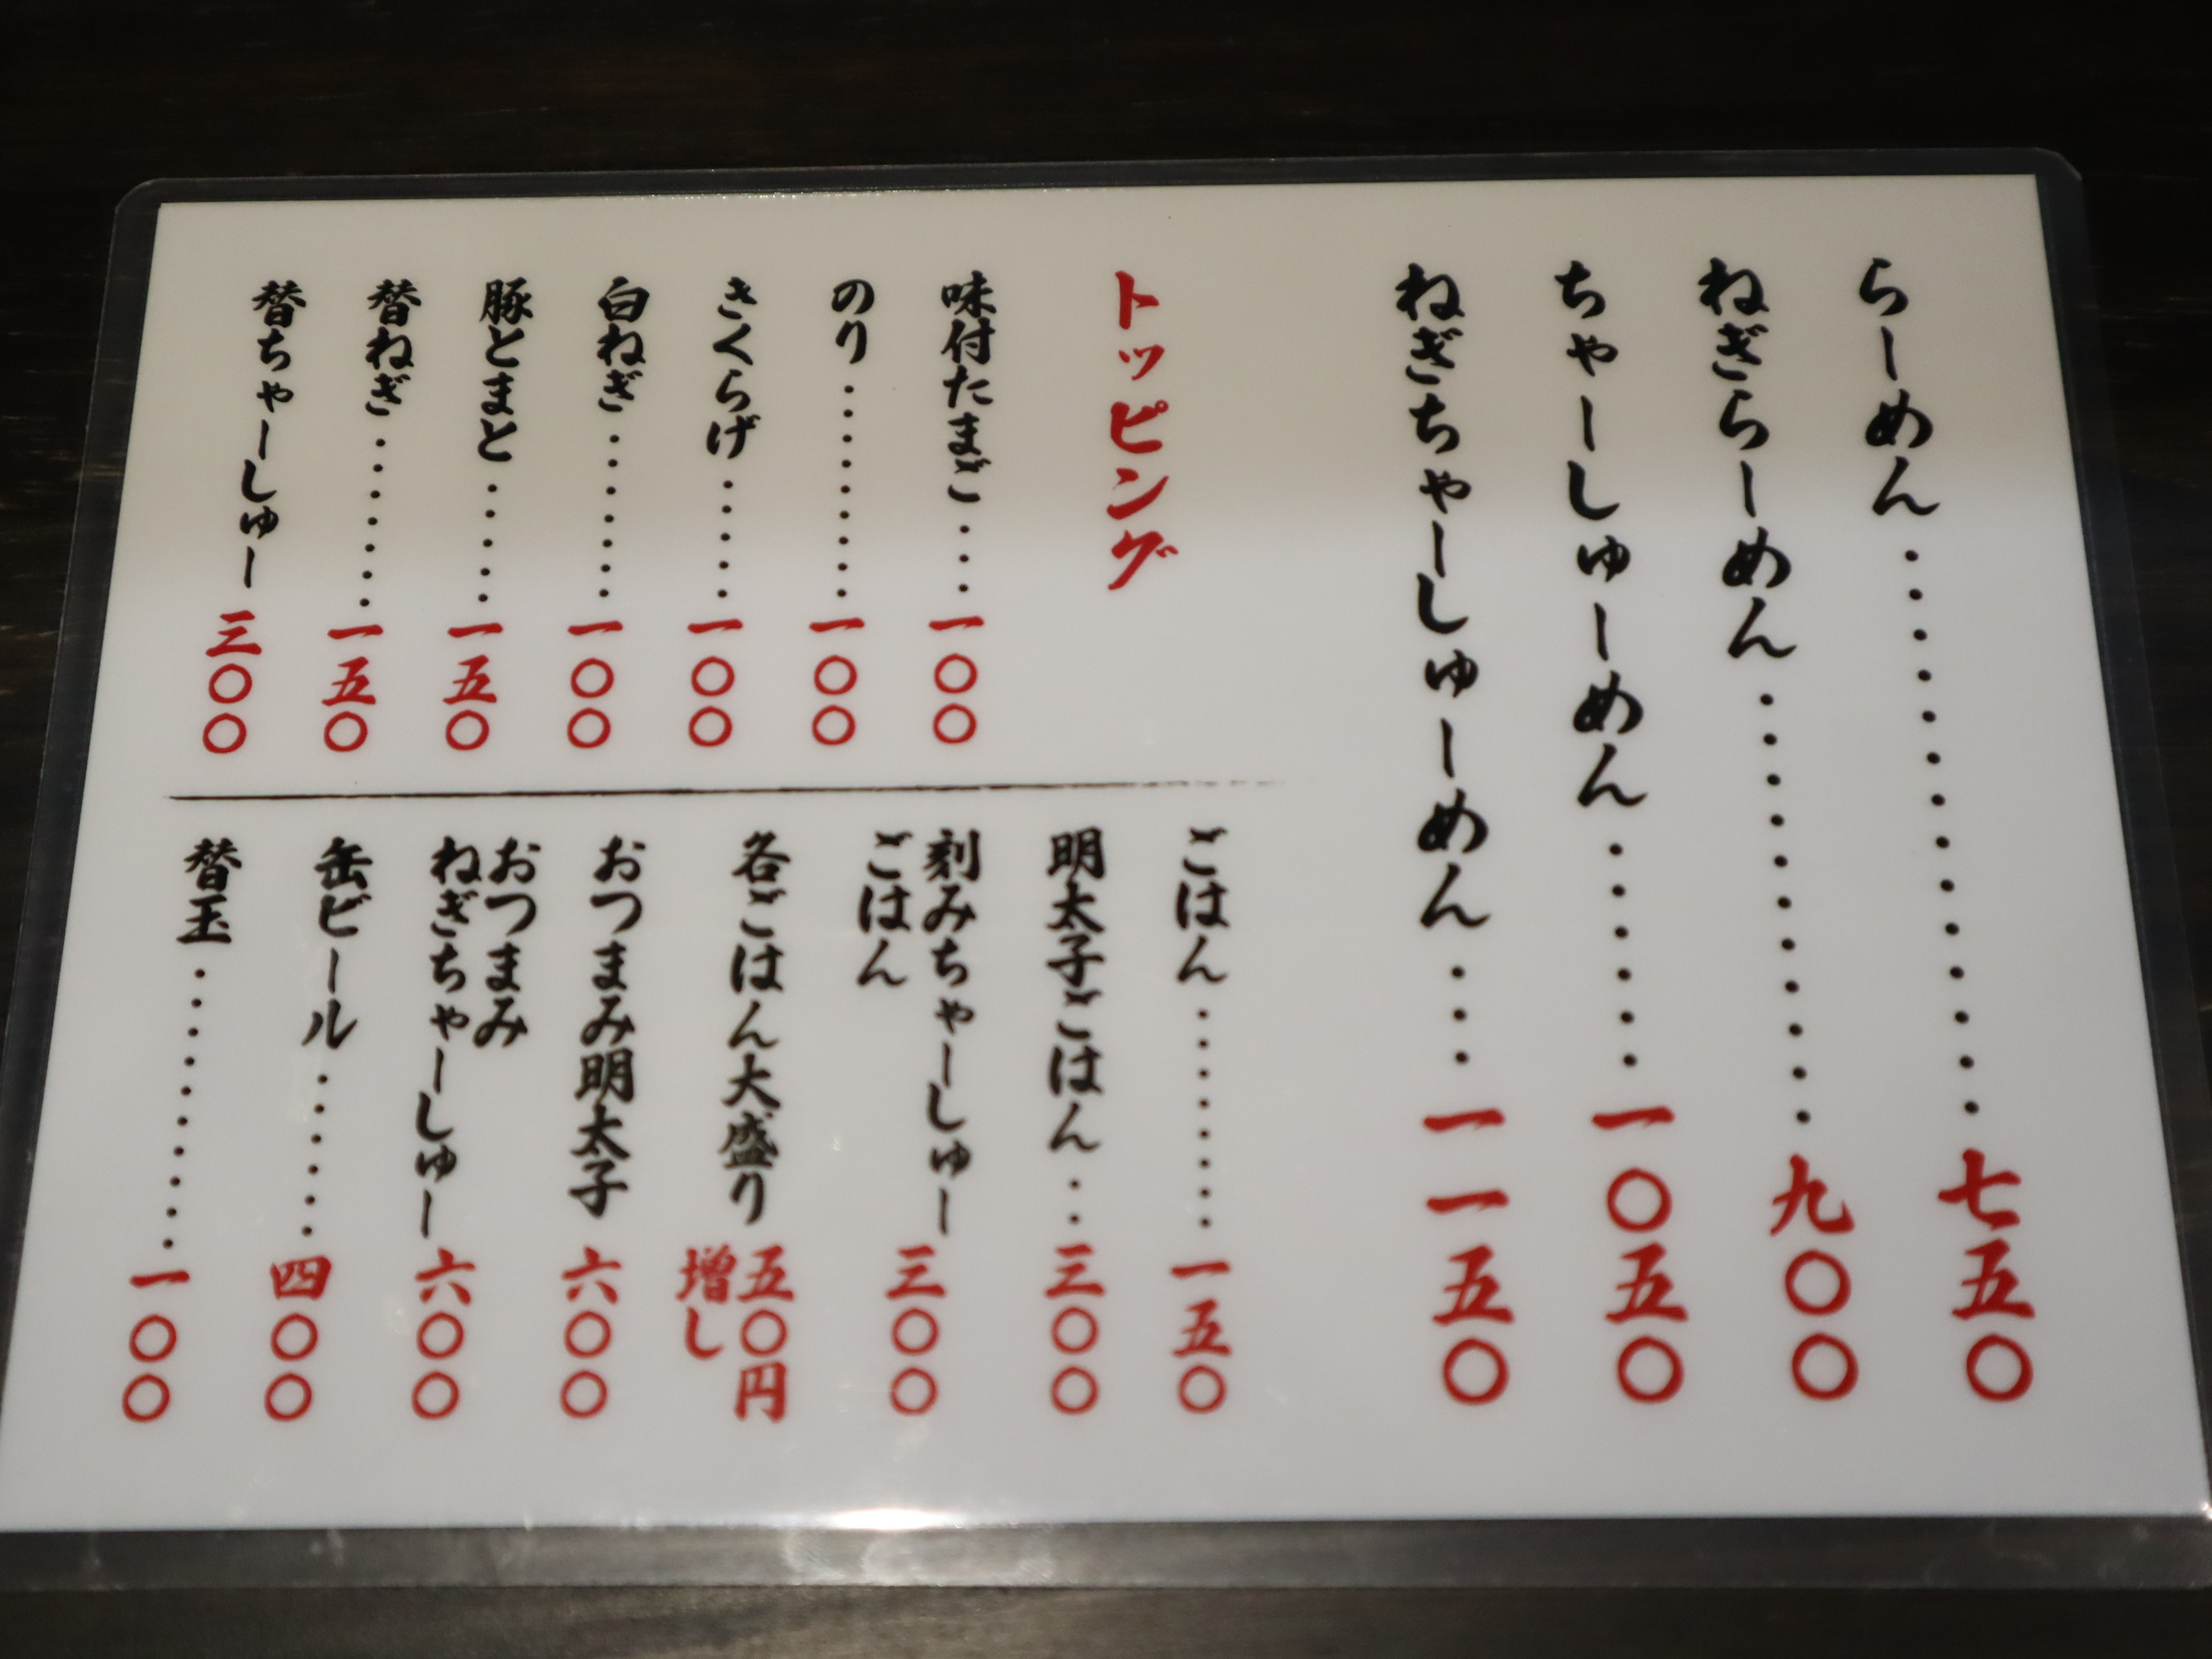 らーめん・・・・・・・・・・・・・・・七五〇
ねぎらーめん・・・・・・・・・・・九〇〇
ちゃーしゅーめん・・・・・・一〇五〇
ねぎちゃーしゅーめん・・・一一五〇
トッピング
味付たまご・・・一〇〇
のり・・・・・・・・・一〇〇
きくらげ・・・・・一〇〇
白ねぎ・・・・・・・一〇〇
豚とまと・・・・・一五〇
替ねぎ・・・・・・・一五〇
替ちゃーしゅー三〇〇
ごはん・・・・・・・・一五〇
明太子ごはん・・三〇〇
刻みちゃーしゅー
ごはん
三〇〇
各ごはん大盛り
五〇円
増し
おつまみ明太子六〇〇
おつまみ
ねぎちゃーしゅー六〇〇
缶ビール・・・・・・四〇〇
替玉・・・・・・・・・・一〇〇